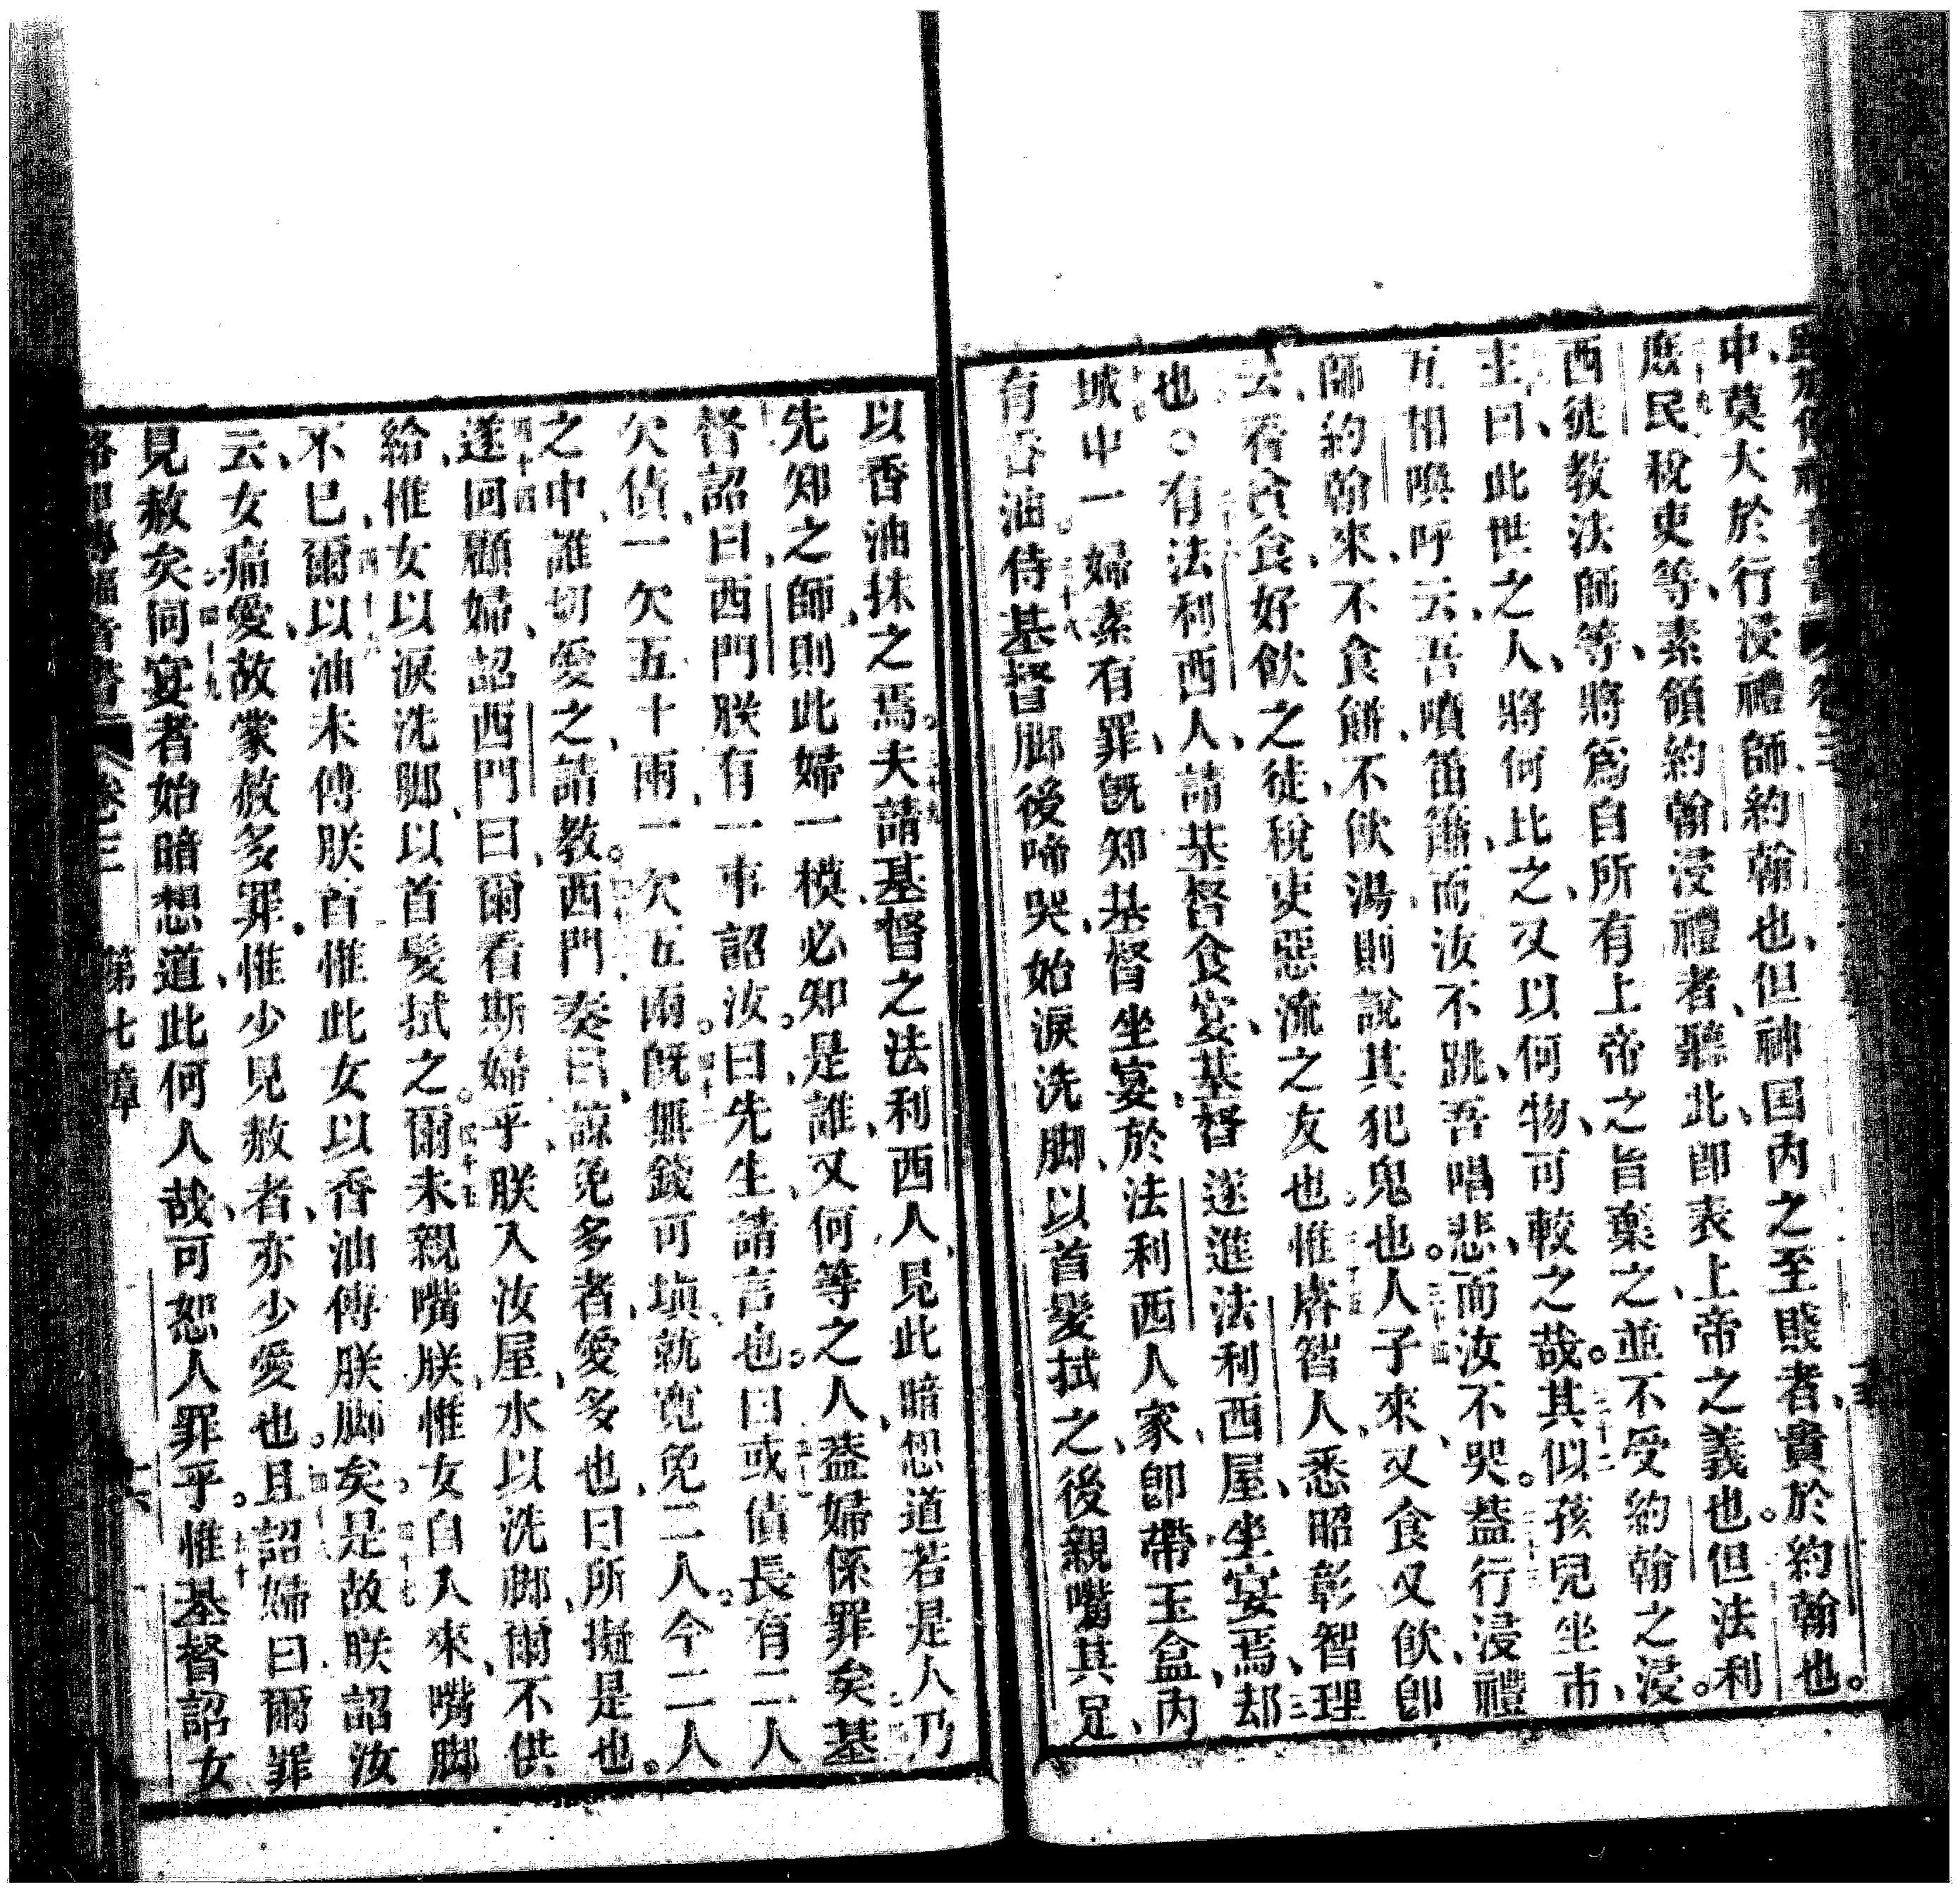 中、莫大於行浸禮師約翰也、但神国內之至賤者、貴於約翰也。
庶民稅吏等、素領約翰浸禮者、聽此即表上帝之義也。但法利
西徒教法師等、將爲自所有上帝之旨棄之、並不受約翰之浸。
主曰、此世之人、將何比之、又以何物、可較之哉。其似孩兒坐市、
互相喚呼云、吾嘖笛簫、而汝不跳、吾唱悲、而汝不哭。蓋行浸禮
師約翰來、不食餅、不飲湯、則說其犯鬼也。人子來、又食又飲、卽
云、看貪食、好飲之徒、稅吏惡流之友也。惟睿智人、悉昭彰智理
也。○有法利西人、請基督食宴、基督遂進法利西屋、坐宴焉、却
城中一婦素有罪、旣知基督坐宴於法利西人家、卽帶玉盒、內
有香油。侍基督脚後啼哭、始淚洗脚、以首髮拭之、後親嘴其足、
以香油抹之焉。夫請基督之法利西人、見此暗想道若是人乃
先知之師、則此婦一模、必知是誰、又何等之人、蓋婦係罪矣。基
督詔曰、西門朕有一事詔汝。曰先生、請言也。曰或債長有二人
欠債、一欠五十兩、一欠五兩。旣無錢可塡、就寬免二人。今二人
之中、誰切愛之、請教。西門奏曰、諒免多者、愛多也、曰所擬是也。
遂回顧婦、詔西門曰、爾看斯婦乎、朕入汝屋、水以洗脚、爾不供
給、惟女以淚洗脚、以首髮拭之。爾未親嘴朕、惟女自入來、嘴脚
不已、爾以油未傅朕首、惟此女以香油傅朕脚矣。是故朕詔汝
云、女痛愛、故蒙赦多罪、惟少見赦者、亦少愛也。且詔婦曰、爾罪
見赦矣。同宴者始暗想道、此何人哉、可恕人罪乎。惟基督詔女
路加傳福音書 卷三 第七章